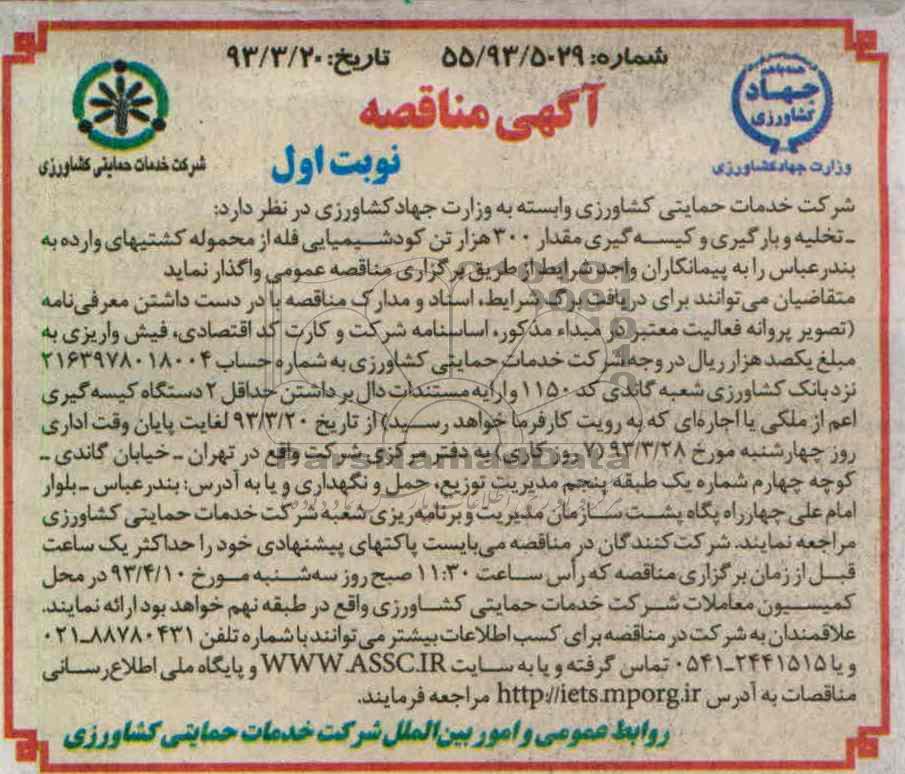 شماره: ۵۵/۹۳/۵۰۲۹ تاریخ: ۹۳/۳/۲۰
جهاد
کشاورزی
وزارت جهادکشاورزی
شرکت خدمات حمایتی کشاورزی
آگهی مناقصه
نوبت اول
شرکت خدمات حمایتی کشاورزی وابسته به وزارت جهادکشاورزی در نظر دارد:
ـ تخلیه و بارگیری و کیسه‌گیری مقدار ۳۰۰ هزار تن کودشیمیایی فله از محموله کشتیهای وارده به
بندرعباس را به پیمانکاران واجد شرایط از طریق برگزاری مناقصه عمومی واگذار نماید
متقاضیان می‌توانند برای دریافت برگ شرایط، اسناد و مدارک مناقصه با در دست داشتن معرفی‌نامه
(تصویر پروانه فعالیت معتبر در مبداء مذکور، اساسنامه شرکت و کارت کد اقتصادی، فیش واریزی به
مبلغ یکصد هزار ریال در وجه شرکت خدمات حمایتی کشاورزی به شماره حساب ۲۱۶۳۹۷۸۰۱۸۰۰۴
نزد بانک کشاورزی شعبه گاندی کد ۱۱۵۰ وارایه مستندات دال بر داشتن حداقل ۲ دستگاه کیسه گیری
اعم از ملکی یا اجاره‌ای که به رویت کارفرما خواهد رسید) از تاریخ ۹۳/۳/۲۰ لغایت پایان وقت اداری
روز چهارشنبه مورخ ۹۳/۳/۲۸ (۷ روز کاری) به دفتر مرکزی شرکت واقع در تهران ـ خیابان گاندی ـ
کوچه چهارم شماره یک طبقه پنجم مدیریت توزیع، حمل و نگهداری و یا به آدرس: بندرعباس ـ بلوار
امام علی چهارراه پگاه پشت سازمان مدیریت و برنامه‌ریزی شعبه شرکت خدمات حمایتی کشاورزی
مراجعه نمایند. شرکت‌کنندگان در مناقصه می‌بایست پاکتهای پیشنهادی خود را حداکثر یک ساعت
قبل از زمان برگزاری مناقصه که رأس ساعت ۱۱:۳۰ صبح روز سه‌شنبه مورخ ۹۳/۴/۱۰ در محل
کمیسیون معاملات شرکت خدمات حمایتی کشاورزی واقع در طبقه نهم خواهد بود ارائه نمایند.
علاقمندان به شرکت در مناقصه برای کسب اطلاعات بیشتر می‌توانند با شماره تلفن ۸۸۷۸۰۴۳۱-۰۲۱
و یا ۲۴۴۱۵۱۵-۰۵۴۱ تماس گرفته و یا به سایت WWW.ASSC.IR و پایگاه ملی اطلاع‌رسانی
مناقصات به آدرس http://iets.mporg.ir مراجعه فرمایند.
روابط عمومی و امور بین‌الملل شرکت خدمات حمایتی کشاورزی
ParsNamadData